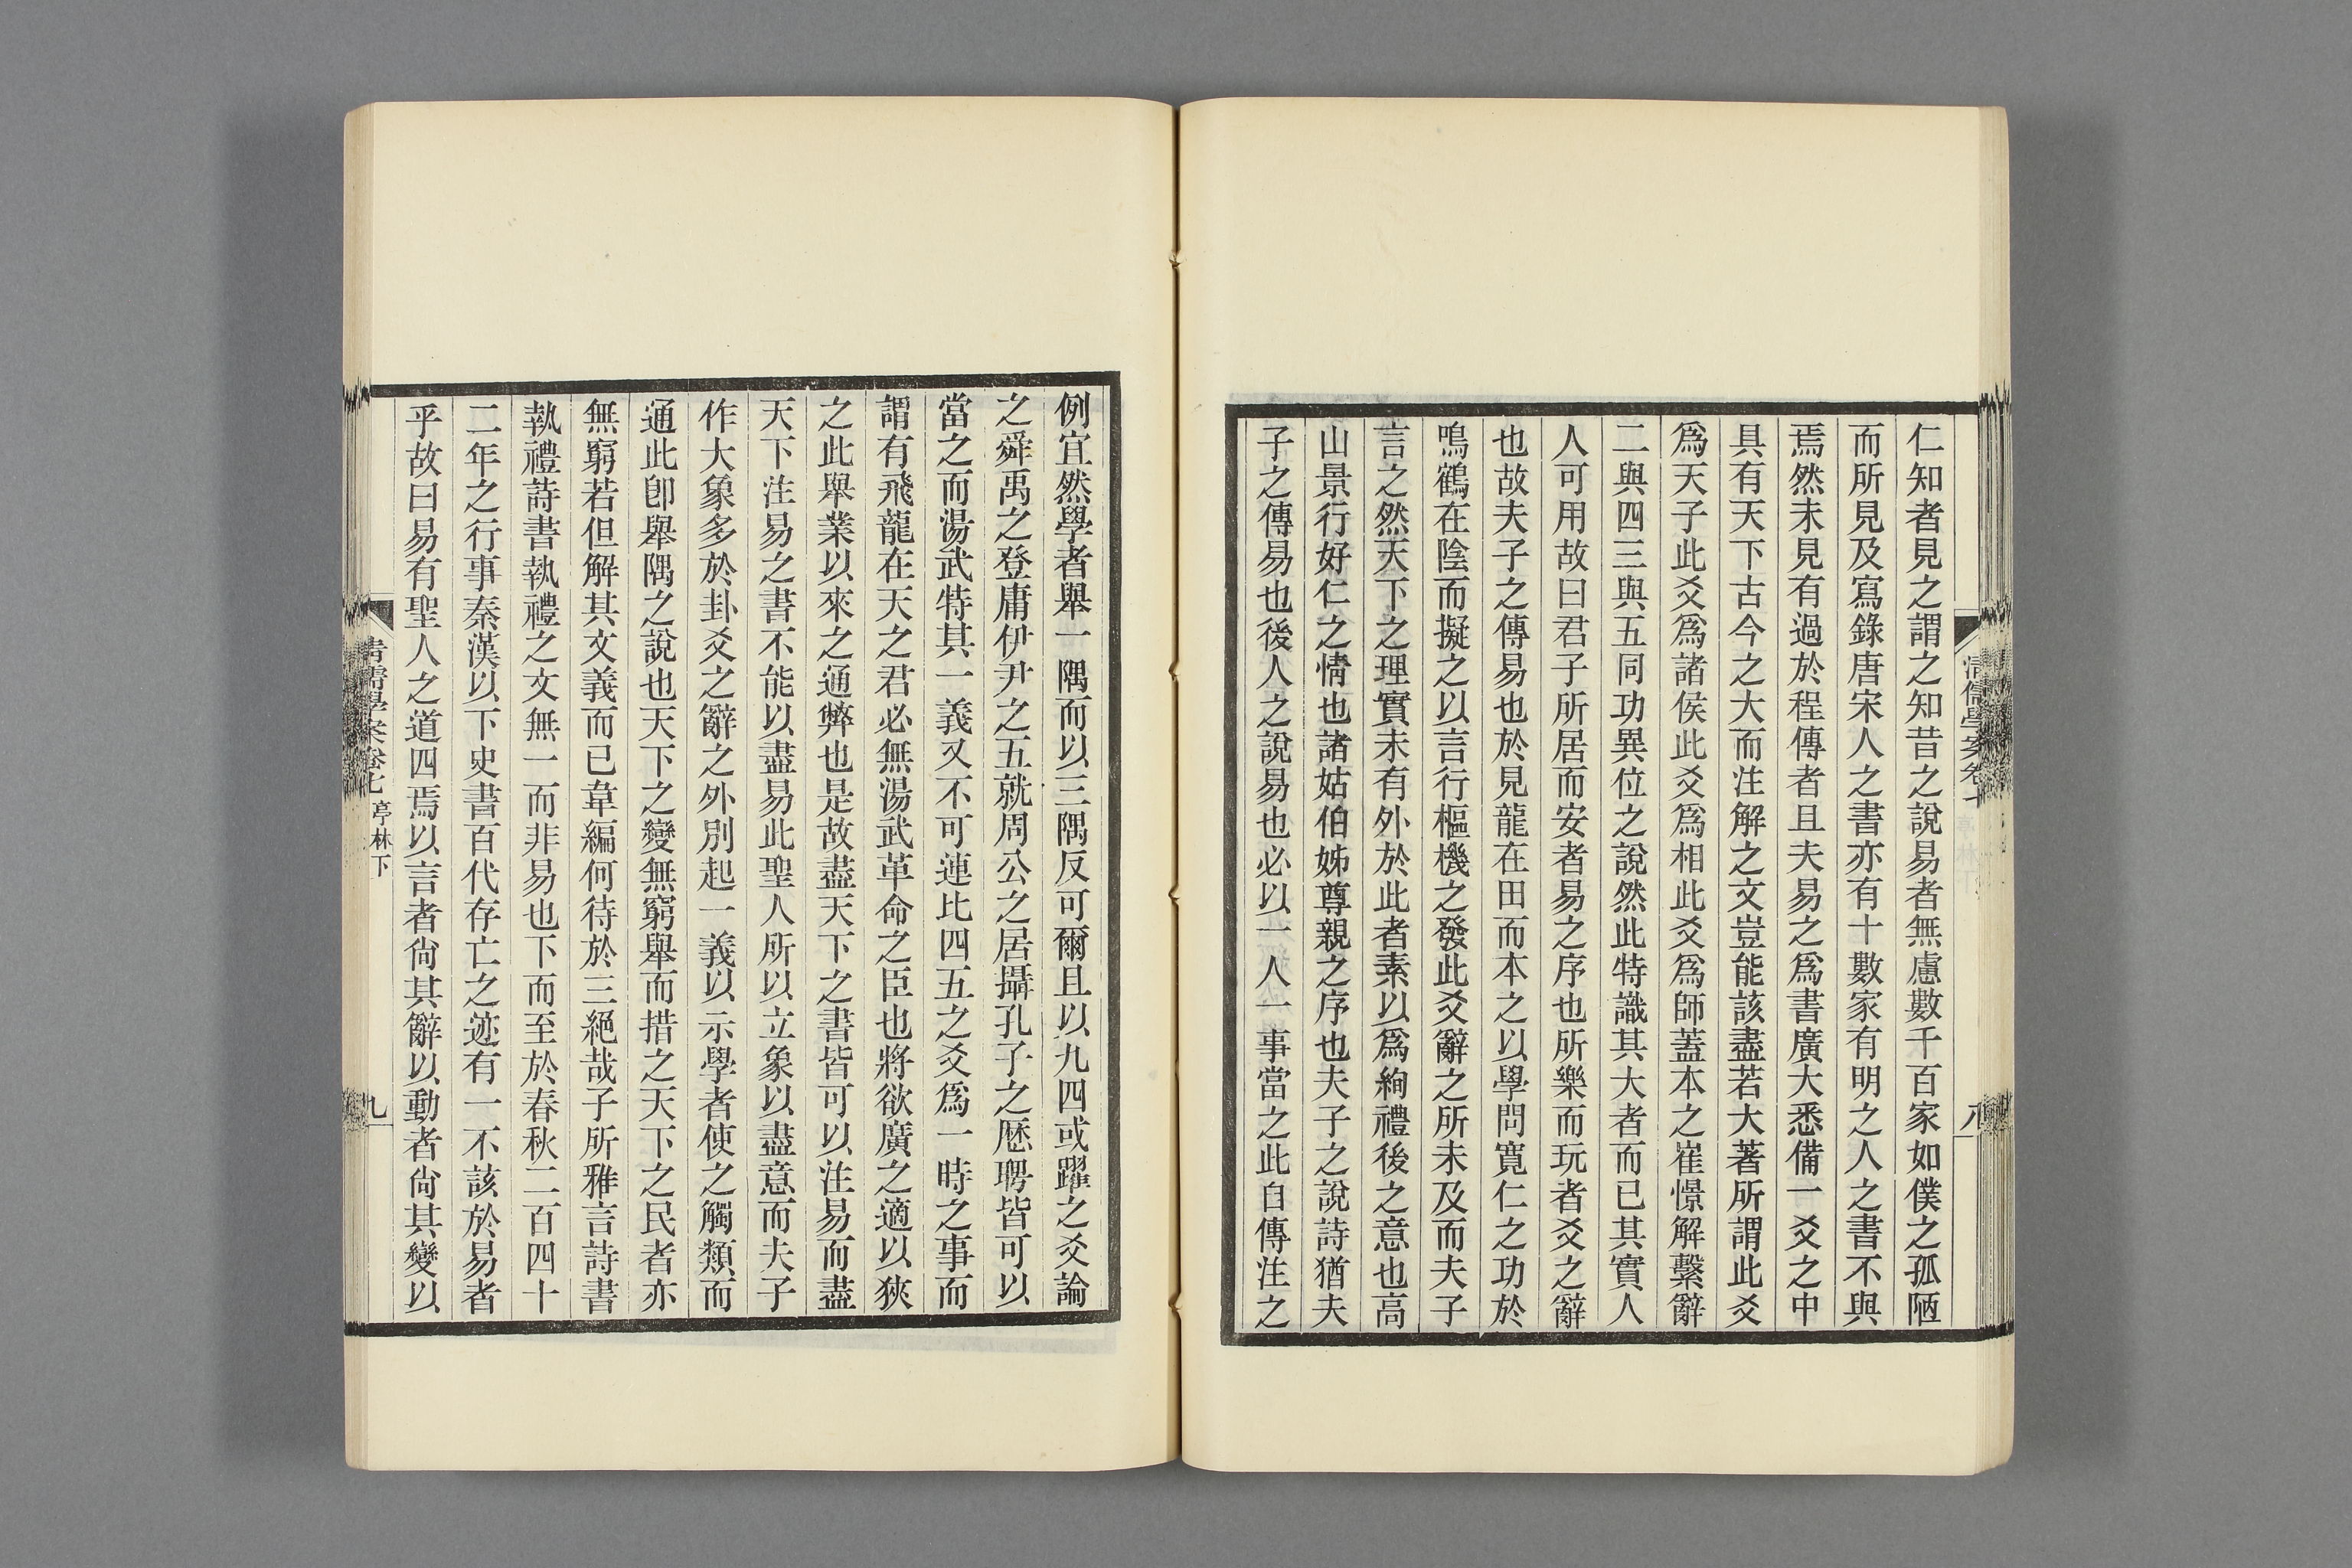 仁知者見之謂之知昔之說易者無慮數千百家如僕之孤陋
而所見及寫錄唐宋人之書亦有十數家有明之人之書不與
焉然未見有過於程傳者且夫易之爲書廣大悉備一爻之中
具有天下古今之大而注解之文豈能該盡若大著所謂此爻
爲天子此爻爲諸侯此爻爲相此爻爲師蓋本之崔憬解繫辭
二與四三與五同功異位之說然此特識其大者而已其實人
人可用故曰君子所居而安者易之序也所樂而玩者爻之辭
也故夫子之傳易也於見龍在田而本之以學問寬仁之功於
鳴鶴在陰而擬之以言行樞機之發此爻辭之所未及而夫子
言之然天下之理實未有外於此者素以爲絢禮後之意也高
山景行好仁之情也諸姑伯姊尊親之序也夫子之說詩猶夫
子之傳易也後人之說易也必以一人一事當之此自傳注之
清儒學案卷七
八
例宜然學者舉一隅而以三隅反可爾且以九四或躍之爻論
之舜禹之登庸伊尹之五就周公之居攝孔子之歷聘皆可以
當之而湯武特其一義又不可連比四五之爻爲一時之事而
謂有飛龍在天之君必無湯武革命之臣也將欲廣之適以狹
之此舉業以來之通弊也是故盡天下之書皆可以注易而盡
天下注易之書不能以盡易此聖人所以立象以盡意而夫子
作大象多於卦爻之辭之外別起一義以示學者使之觸類而
通此卽舉隅之說也天下之變無窮舉而措之天下之民者亦
無窮若但解其文義而已韋編何待於三絕哉子所雅言詩書
執禮詩書執禮之文無一而非易也下而至於春秋二百四十
二年之行事秦漢以下史書百代存亡之迹有一不該於易者
乎故曰易有聖人之道四焉以言者尙其辭以動者尙其變以
清儒學案卷七 亭林下
九